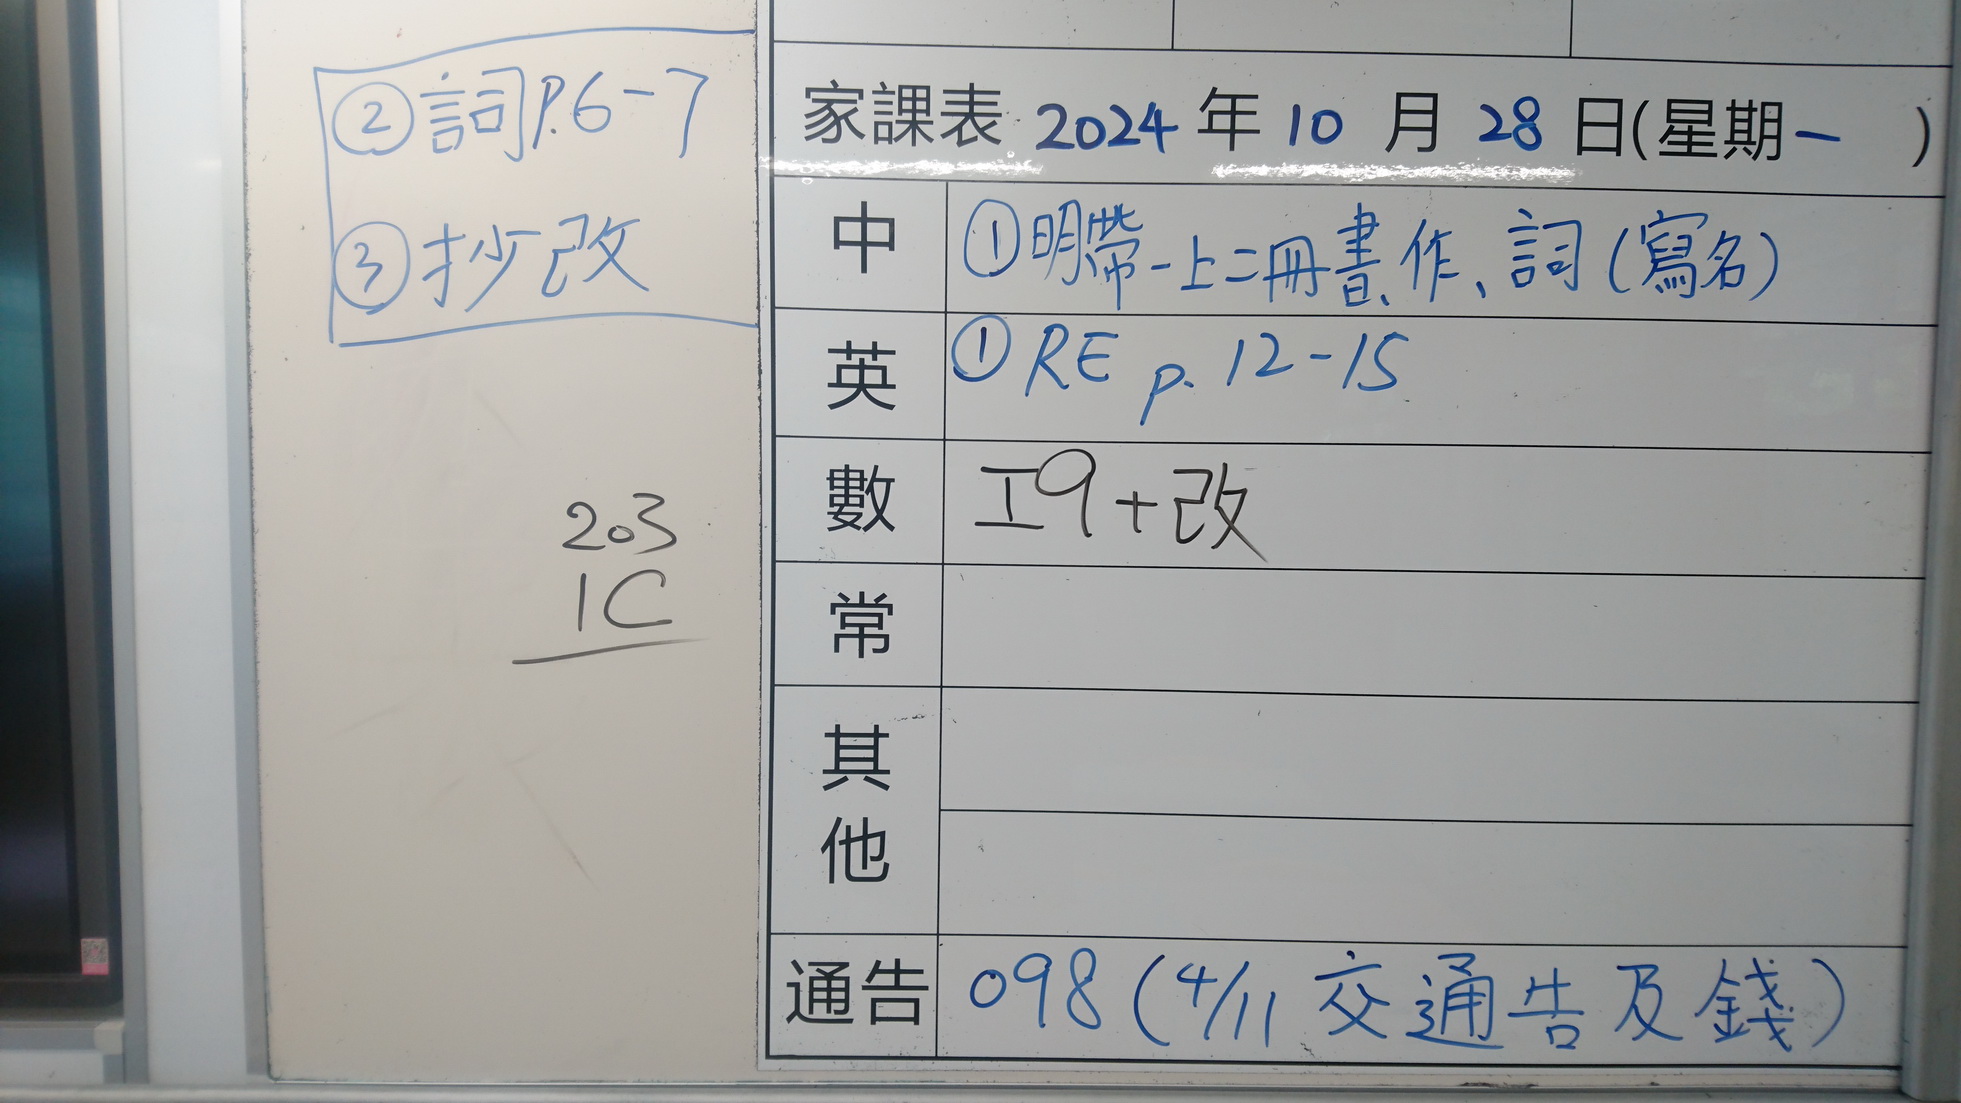 ②詞P.6-7
③抄改
203
1C
家課表 2024 年 10 月 28 日(星期一 )
中 ①明帶一上二冊書、作、詞(寫名)
英 ①RE p.12-15
數 工9+改
常
其他
通告 098(4/11 交通告及錢)